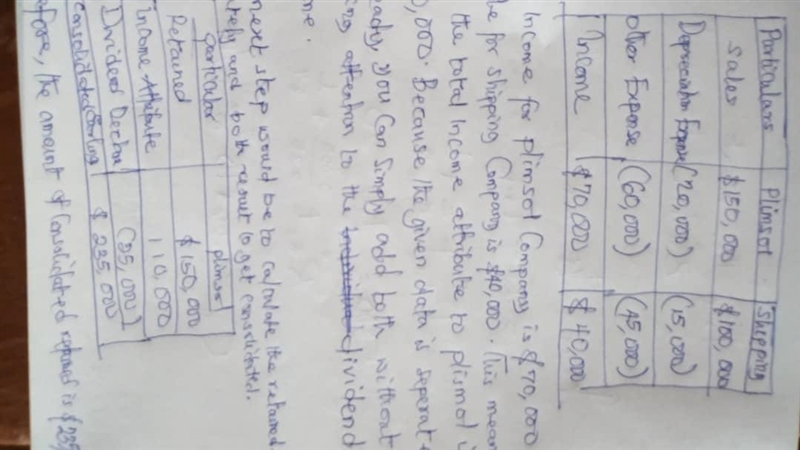 Particulars Plimsol Shipping
Sales $150,000 $100,000
Depreciation Expense (20,000) (15,000)
other Expense (60,000) (45,000)
Income $70,000 $40,000
Income for plimsol Company is $70,000
le for Shipping Company is $40,000. This mean
the total income attribute to plismol i
0,000. Because the given data is separat
eady, you can simply add both without
ing attention to the dividend
me.
next step would be to calculate the retained
tely and both result to get consolidated.
particular plimsol
Retained $150,000
Income Attribute 110,000
Dividend Declare (25,000)
Consolidated $235,000
efore, the amount of Consolidated retained is $235